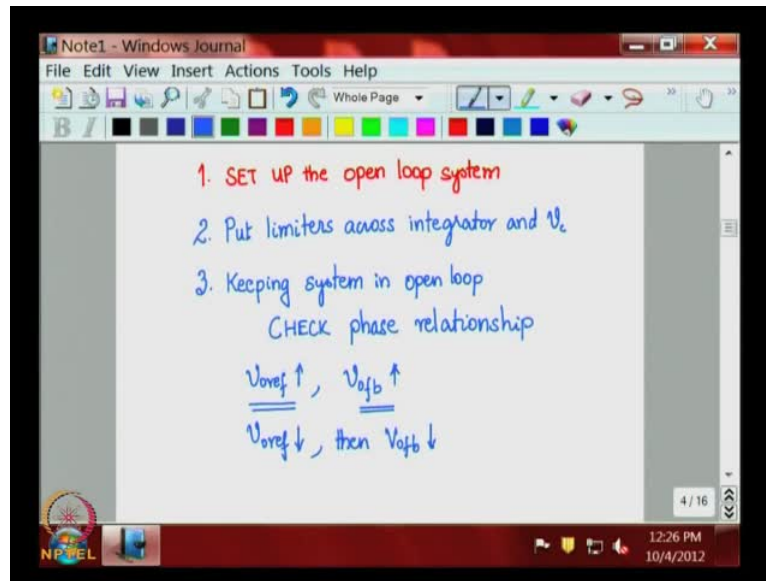 Note1 - Windows Journal
File Edit View Insert Actions Tools Help
Whole Page
B I
1. SET UP the open loop system
2. Put limiters across integrator and Vc
3. Keeping system in open loop
CHECK phase relationship
Voref ↑, Vofb ↑
Voref ↓, then Vofb ↓
4 / 16
NPTEL
12:26 PM
10/4/2012